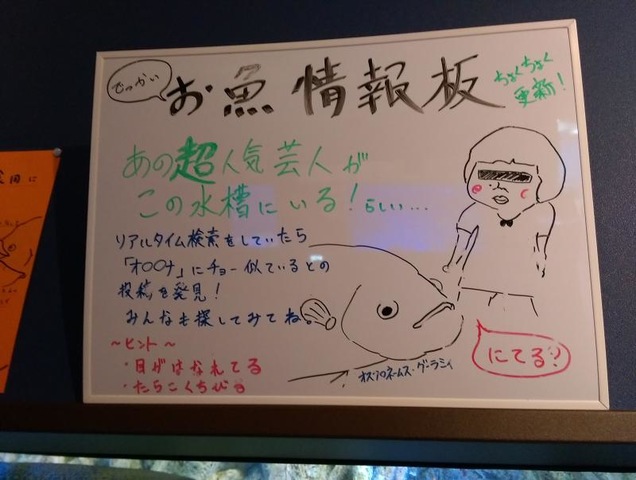 でっかい
お魚情報板
ちょくちょく
更新!
あの超人気芸人が
この水槽にいる!らしい...
リアルタイム検索をしていたら
「オ○○ナ」にチョー似ているとの
投稿を発見!
みんなも探してみてね。
~ヒント~
・目がはなれてる
・たらこくちびる
にてる?
オスフロネームス・グーラミィ